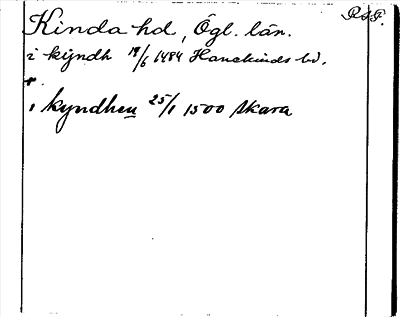 Kinda hd, Ögl. län.
i kyndh 18/6 1484 Hanekinds hd.
i kyndhen 25/1 1500 Skara